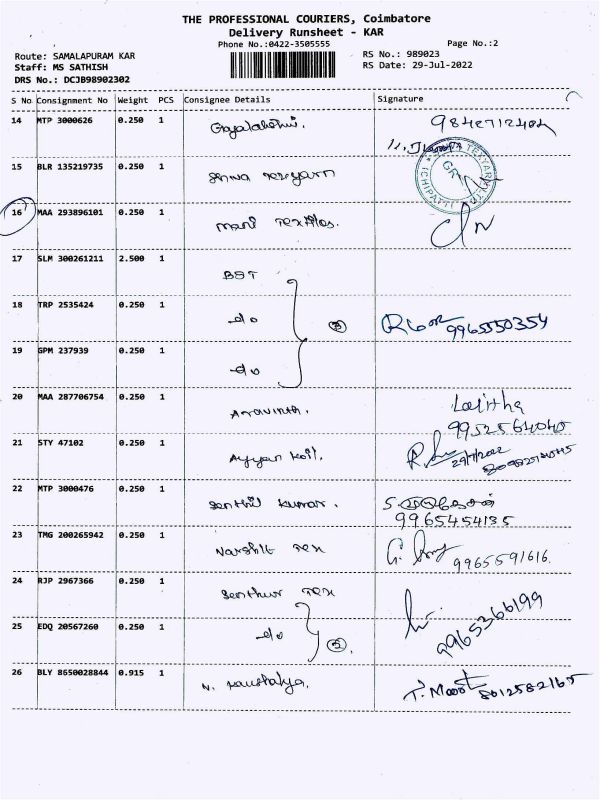 THE PROFESSIONAL COURIERS, Coimbatore
Delivery Runsheet - KAR
Phone No.:0422-3505555
Page No.:2
Route: SAMALAPURAM KAR
RS No.: 989023
Staff: MS SATHISH
RS Date: 29-Jul-2022
DRS No.: DCJB98902302
S No Consignment No Weight PCS Consignee Details Signature
14 MTP 3000626 0.250 1 Gajalakshmi.
15 BLR 135219735 0.250 1 Shiva Texyarn
16 MAA 293896101 0.250 1 Mani Textiles.
17 SLM 300261211 2.500 1 BST
18 TRP 2535424 0.250 1 do 3 9965550354
19 GPM 237939 0.250 1 do
20 MAA 287706754 0.250 1 Aravinth. Lalitha
9952564040
21 STY 47102 0.250 1 Ayyan Koil. 29/7/2022
22 MTP 3000476 0.250 1 Senthil Kumar.
9965454135
23 TMG 200265942 0.250 1 Harshit Tex 9965591616.
24 RJP 2967366 0.250 1 Senthur Tex
9965366199
25 EDQ 20567260 0.250 1 do 2
26 BLY 8650028844 0.915 1 N. Kaushalya. 8012582165